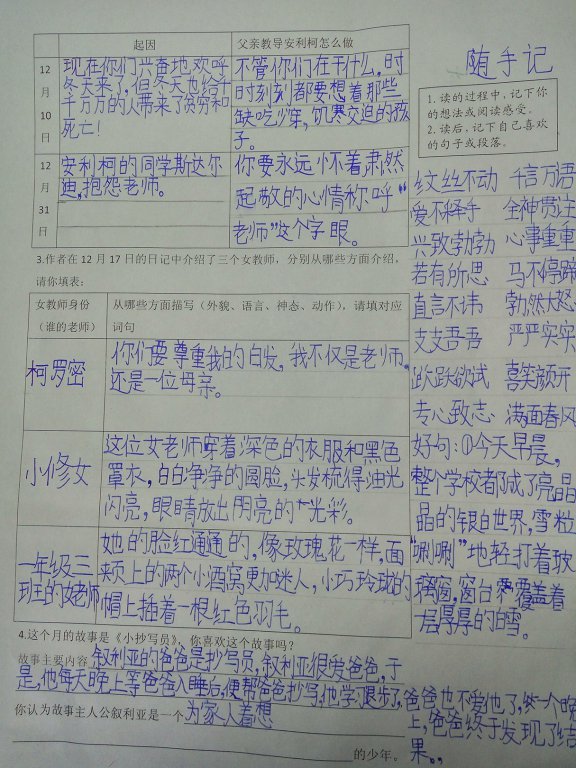 起因
父亲教导安利柯怎么做
12
月
10
日
现在你们兴奋地欢呼
冬天来了，但冬天也给千
千万万的人带来了贫穷和
死亡！
不管你们在干什么，时
时刻刻都要想着那些
缺吃少穿，饥寒交迫的孩
子。
12
月
31
日
安利柯的同学斯达尔
迪，抱怨老师。
你要永远怀着肃然
起敬的心情称呼“
老师”这个字眼。
3.作者在 12 月 17 日的日记中介绍了三个女教师，分别从哪些方面介绍，
请你填表：
女教师身份
（谁的老师）
从哪些方面描写（外貌、语言、神态、动作），请填对应
词句
柯罗密
你们要尊重我的白发，我不仅是老师，
还是一位母亲。
小修女
这位女老师穿着深色的衣服和黑色
罩衣，白白净净的圆脸，头发梳得油光
闪亮，眼睛放出明亮的光彩。
一年级三
班的女老师
她的脸红通通的，像玫瑰花一样，面
颊上的两个小酒窝更加迷人，小巧玲珑的
帽上插着一根红色羽毛。
4.这个月的故事是《小抄写员》，你喜欢这个故事吗？
故事主要内容 叙利亚的爸爸是抄写员，叙利亚很爱爸爸，于
是，他每天晚上等爸爸入睡后，便帮爸爸抄写，他学习退步了，爸爸也不爱他了，一个晚
上，爸爸终于发现了结
果。
你认为故事主人公叙利亚是一个为家人着想
的少年。
随手记
1. 读的过程中，记下你
的想法或阅读感受。
2. 读后，记下自己喜欢
的句子或段落。
纹丝不动 千言万语
爱不释手 全神贯注
兴致勃勃 心事重重
若有所思 马不停蹄
直言不讳 勃然大怒
支支吾吾 严严实实
跃跃欲试 喜笑颜开
专心致志 满面春风
好句：①今天早晨，
整个学校都成了亮晶
晶的银白世界，雪粒
“唰唰”地轻打着玻
璃窗，窗台覆盖着
一层厚厚的白雪。